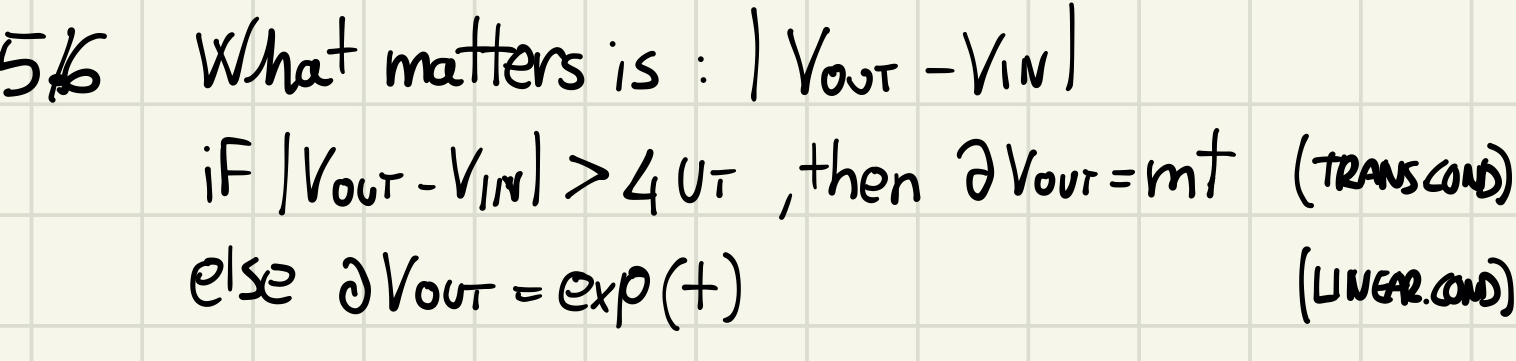 5/6 What matters is : | VOUT - VIN |
iF |VOUT - VIN| > 4 UT , then ∂VOUT = mt (TRANSCOND)
else ∂VOUT = exp(t) (LINEAR.COND)